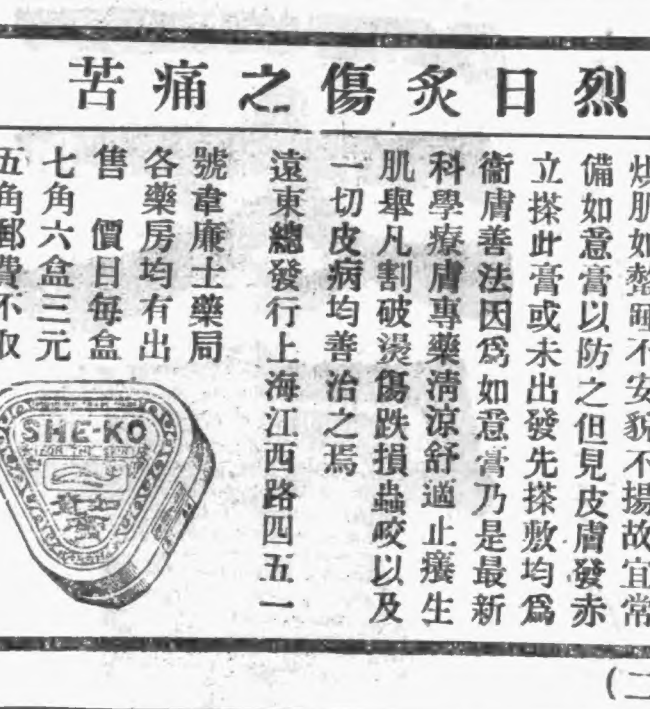 烈日炙傷之痛苦
烘肌如螫晤不安貌不揚故宜常
備如意膏以防之但見皮膚發赤
立搽此膏或未出發先搽敷均爲
衞膚善法因爲如意膏乃是最新
科學療膚專藥淸涼舒適止癢生
肌舉凡割破燙傷跌損蟲咬以及
一切皮病均善治之焉
遠東總發行上海江西路四五一
號韋廉士藥局
各藥房均有出
售 價目每盒
七角六盒三元
五角郵費不取
SHE-KO
FOR THE SKIN
(二